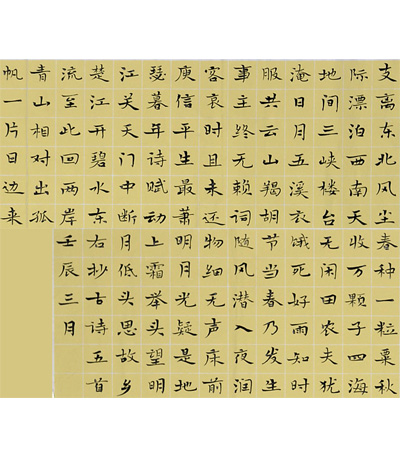 支离东北风尘
际漂泊西南天
地间三峡楼台
淹日月五溪衣
服共云山羯胡
事主终无赖词
客哀时且未还
庾信平生最萧
瑟暮年诗赋动
江关天门中断
楚江开碧水东
流至此回两岸
青山相对出孤
帆一片日边来
春种一粒粟秋
收万颗子四海
无闲田农夫犹
饿死好雨知时
节当春乃发生
随风潜入夜润
物细无声床前
明月光疑是地
上霜举头望明
月低头思故乡
右抄古诗五首
壬辰三月